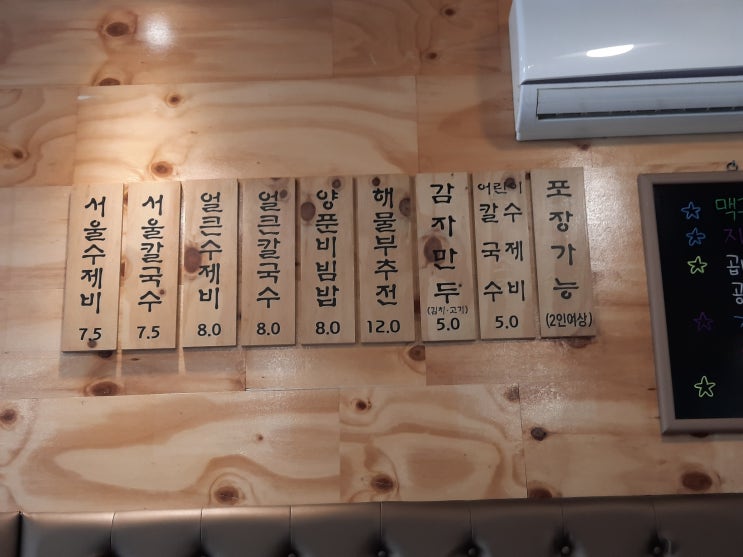 서울수제비
7.5
서울칼국수
7.5
얼큰수제비
8.0
얼큰칼국수
8.0
양푼비빔밥
8.0
해물부추전
12.0
감자만두
(김치·고기)
5.0
어린이
칼국수
수제비
5.0
포장가능
(2인이상)